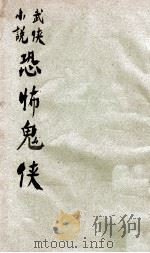 武俠
小說
恐怖鬼俠
mtoou.info